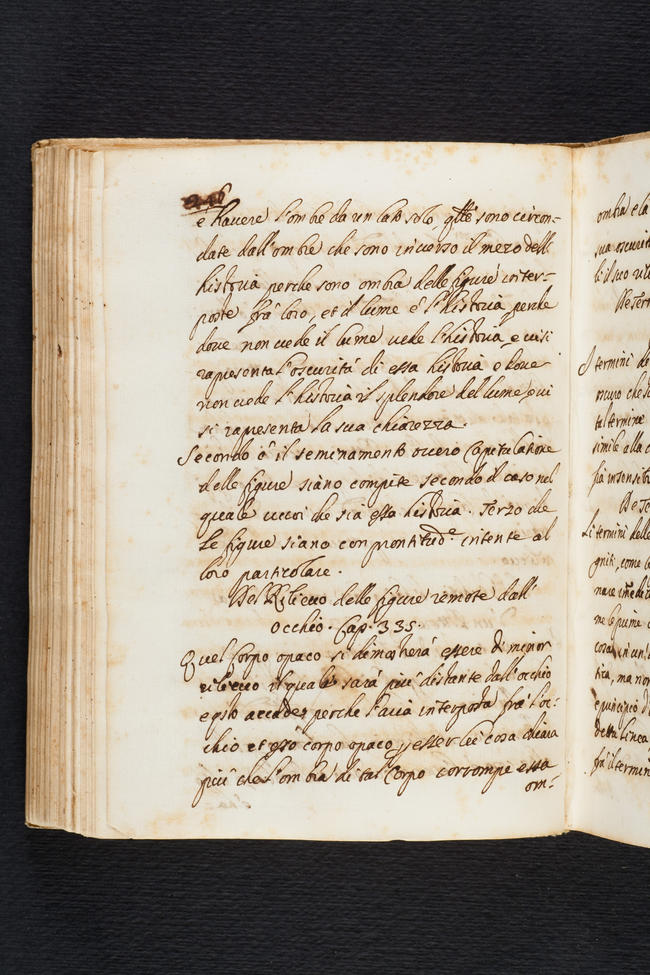 246
è havere l'ombre da un lato solo, q̃lle sono circon-
date dall'ombre che sono inverso il mezo dell'
historia perche sono ombra delle figure inter-
poste frà loro, et il lume è l'historia perche
dove non vede il lume vede l'historia, e vi si
rapresenta l'oscurità di essa historia e dove
non vede l'historia il splendore del lume, ivi
si rapresenta la sua chiarezza.
Secondo è il seminamento overo Capitulatione
delle figure siano compite secondo il caso nel
quale vuoi che sia essa historia. Terzo che
le figure siano con prontitude intente al
loro particolare.
Del Rilievo delle figure remote dall'
occhio. Cap. 335.
Quel Corpo opaco si dimostrerà essere di minor
rilievo il quale sarà più distante dall'occhio
e q̃sto accade perche l'aria interposta frà l'oc-
chio et esso corpo opaco p esser lei cosa chiara
più che l'ombra di tal Corpo corrompe essa
om-
ombra e la
sua oscurità
li il suo rile
De Term
I termini de
oscuro che
tal termine
simile alla
già insensibi
De Te
Li termini delle
gniti, come
nare immedia
me le prime
cosa, n'un'
tica, ma non
e principio d
detta linea
frà il termin